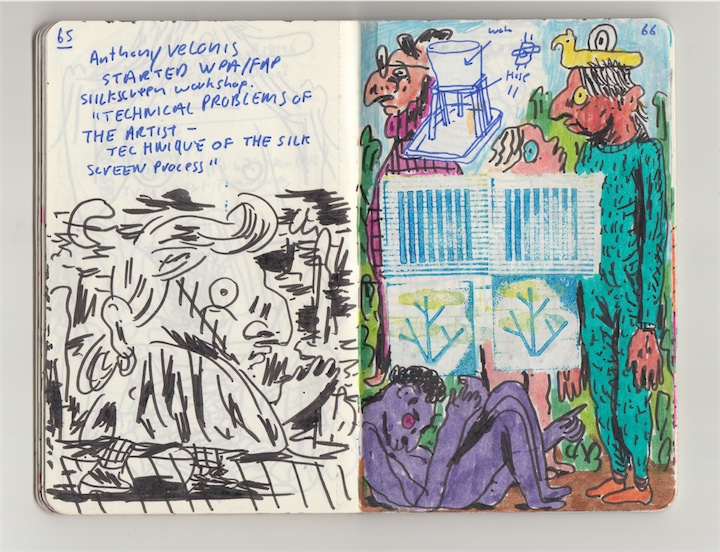 65
Anthony Velonis
STARTED WPA/FAP
SIILKSCREEN WORKSHOP.
"TECHNICAL PROBLEMS OF
THE ARTIST –
TECHNIQUE OF THE SILK
SCREEN PROCESS"
66